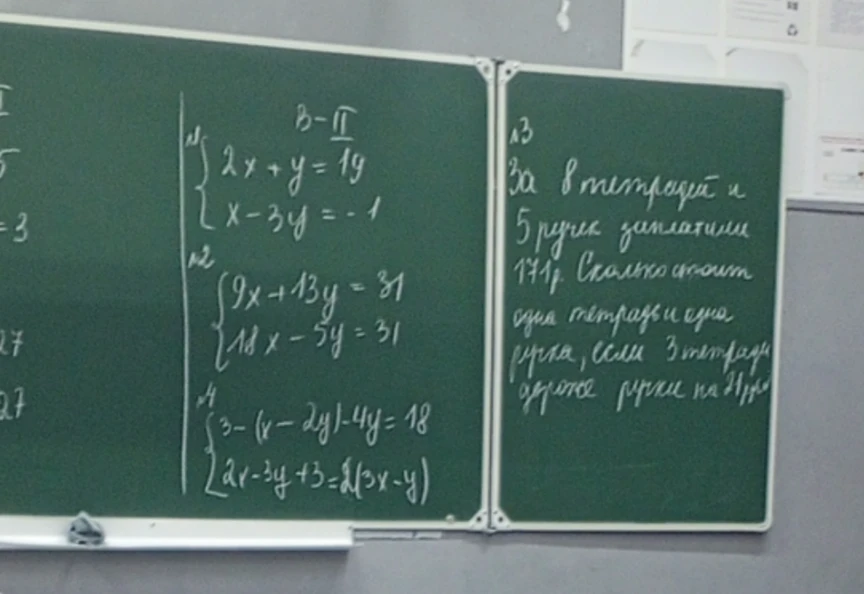 5
= 3
27
27
В-II
№1
2x + y = 19
x - 3y = -1
№2
9x + 13y = 31
18x - 5y = 31
№4
3-(x-2y)-4y = 18
2x-3y+3=2(3x-y)
№3
За 8 тетрадей и
5 ручек заплатили
171р. Сколько стоит
одна тетрадь и одна
ручка, если 3 тетради
дороже ручки на 21